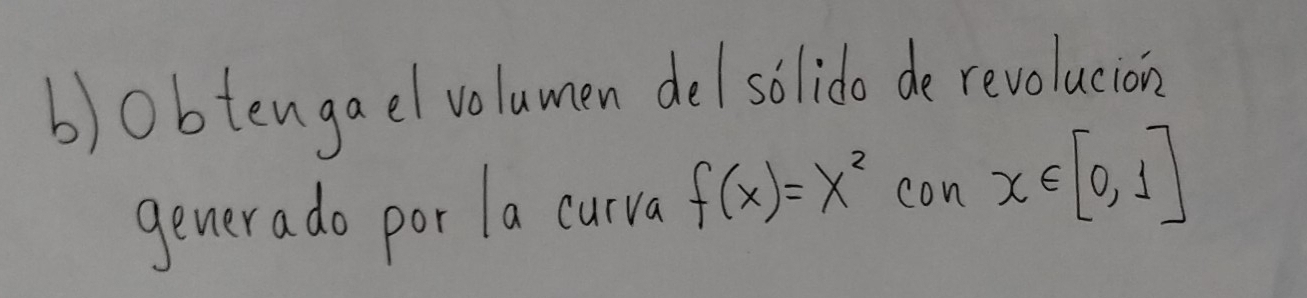 b) Obtenga el volumen del sólido de revolución
generado por la curva f(x)=x² con x∈[0,1]